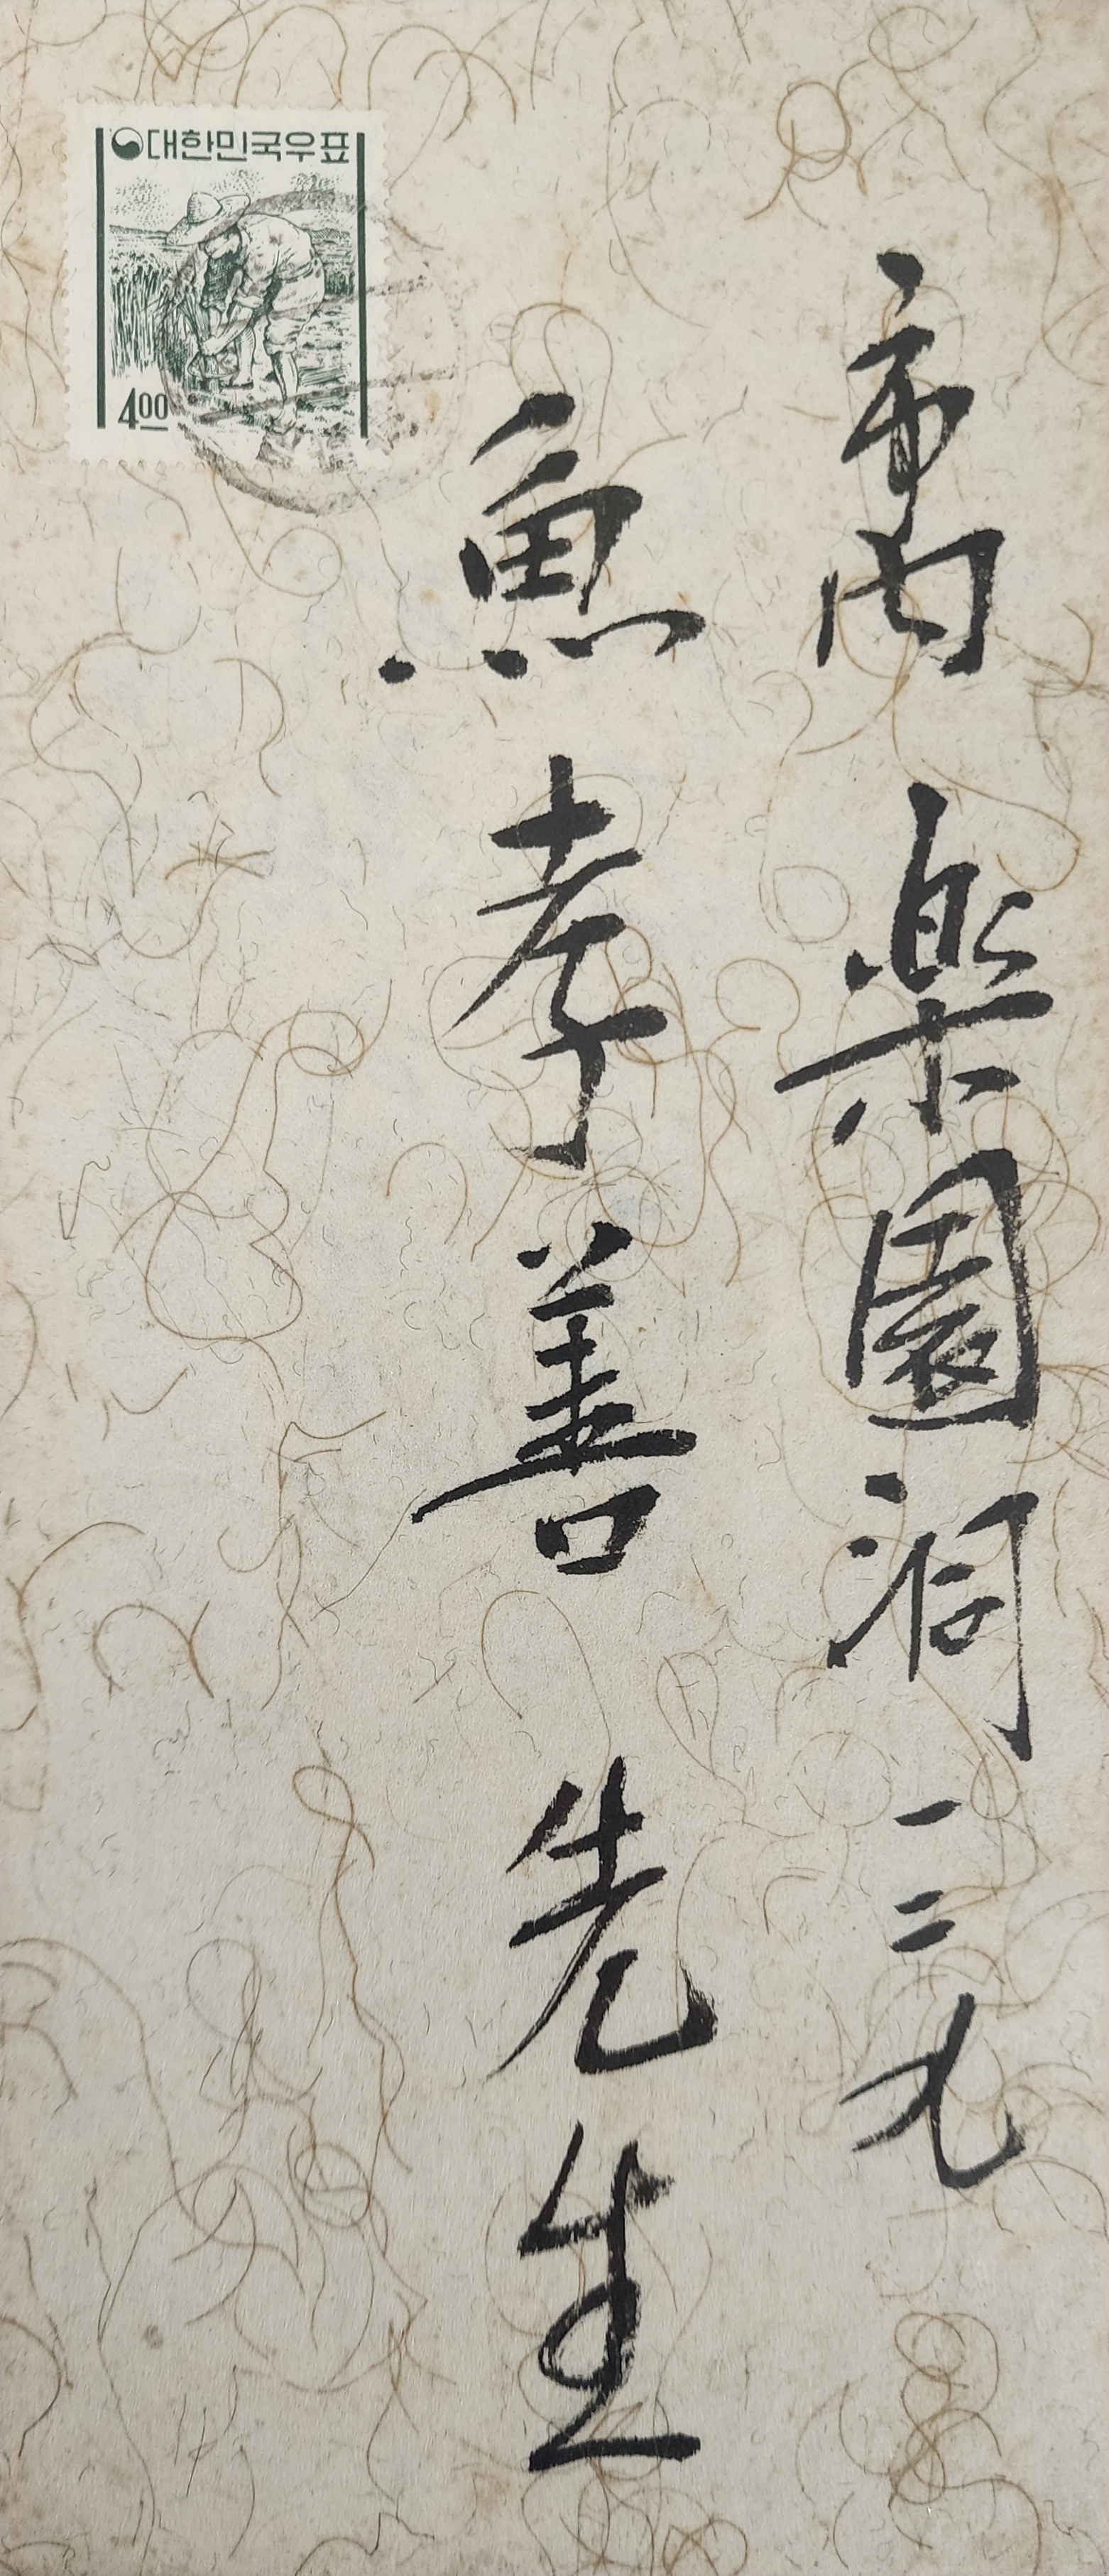 市内 楽園洞 一二九
魚孝善 先生
대한민국우표
400